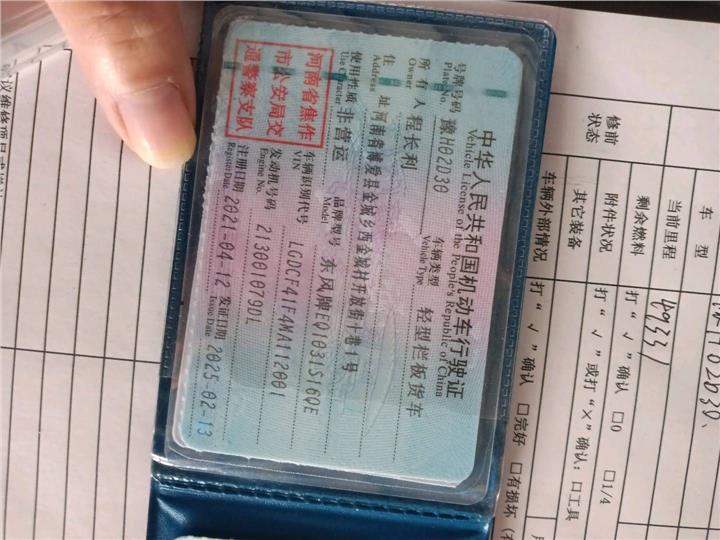 中华人民共和国机动车行驶证
Vehicle License of the People's Republic of China
号牌号码 豫H02D30 车辆类型 轻型栏板货车
Plate No. Vehicle Type
所有人 程长利
Owner
住址 河南省博爱县金城乡西金城村开放街十巷1号
Address
使用性质 非营运 品牌型号 东风牌EQ1031S16QE
Use Character Model
河南省焦作
市公安局交
通警察支队
车辆识别代号 LGDCF41F4MA112001
VIN
发动机号码 213001079DL
Engine No.
注册日期 2021-04-12 发证日期 2025-02-13
Register Date Issue Date
车 型
当前里程 49331
剩余燃料 打“√”确认 □0 □1/4
修前
状态
附件状况 打“√”或打“×”确认：□工具
其它装备
车辆外部情况 打“√”确认 □完好 □有损坏